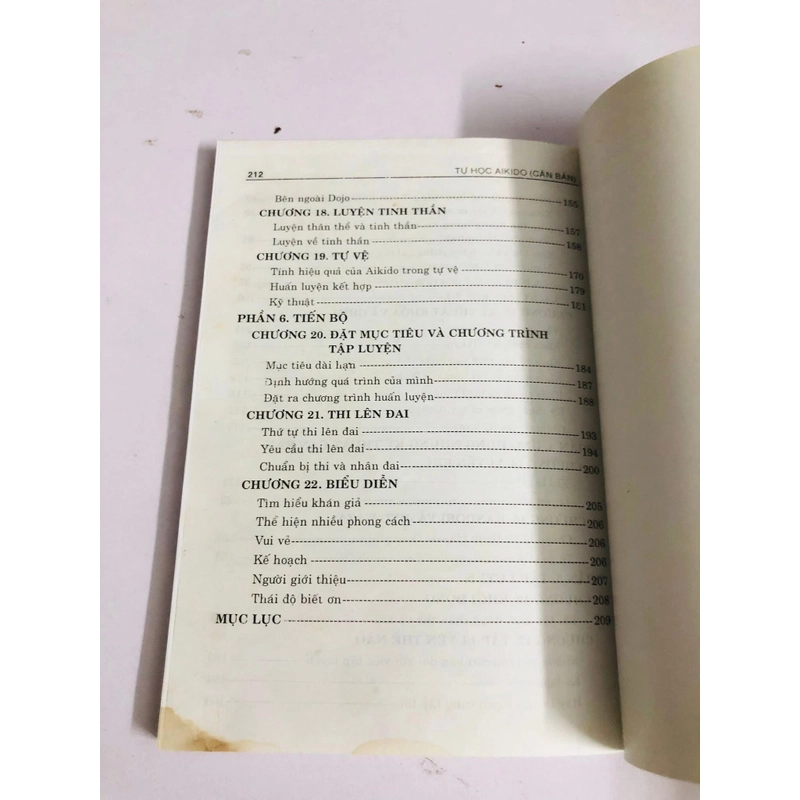 212 TỰ HỌC AIKIDO (CĂN BẢN)
Bên ngoài Dojo 155
CHƯƠNG 18. LUYỆN TINH THẦN
Luyện thân thể và tinh thần 157
Luyện về tinh thần 158
CHƯƠNG 19. TỰ VỆ
Tính hiệu quả của Aikido trong tự vệ 170
Huấn luyện kết hợp 179
Kỹ thuật 181
PHẦN 6. TIẾN BỘ
CHƯƠNG 20. ĐẶT MỤC TIÊU VÀ CHƯƠNG TRÌNH
TẬP LUYỆN
Mục tiêu dài hạn 184
Định hướng quá trình của mình 187
Đặt ra chương trình huấn luyện 188
CHƯƠNG 21. THI LÊN ĐAI
Thứ tự thi lên đai 193
Yêu cầu thi lên đai 194
Chuẩn bị thi và nhân đai 200
CHƯƠNG 22. BIỂU DIỂN
Tìm hiểu khán giả 205
Thể hiện nhiều phong cách 206
Vui vẻ 206
Kế hoạch 206
Người giới thiệu 207
Thái độ biết ơn 208
MỤC LỤC 209